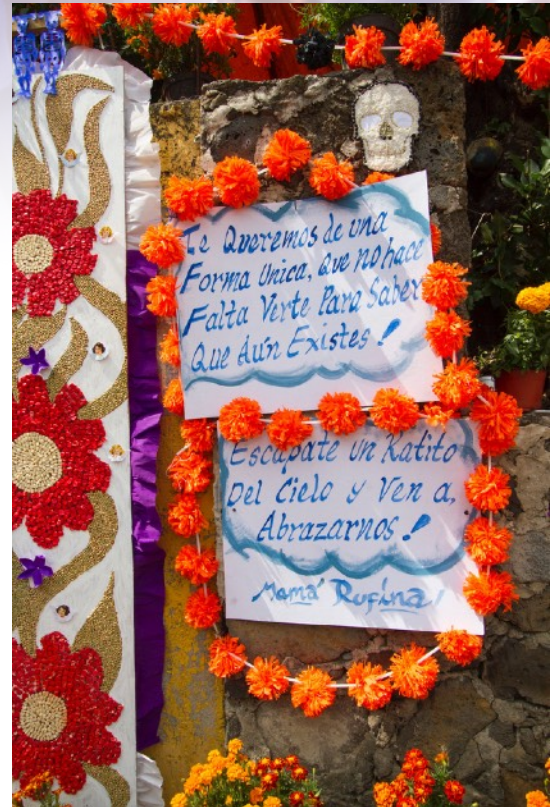 Te Queremos de una
Forma Unica, Que no hace
Falta Verte Para Saber
Que Aún Existes !
Escapate un Ratito
Del Cielo y Ven a,
Abrazarnos !
Mamá Rufina !